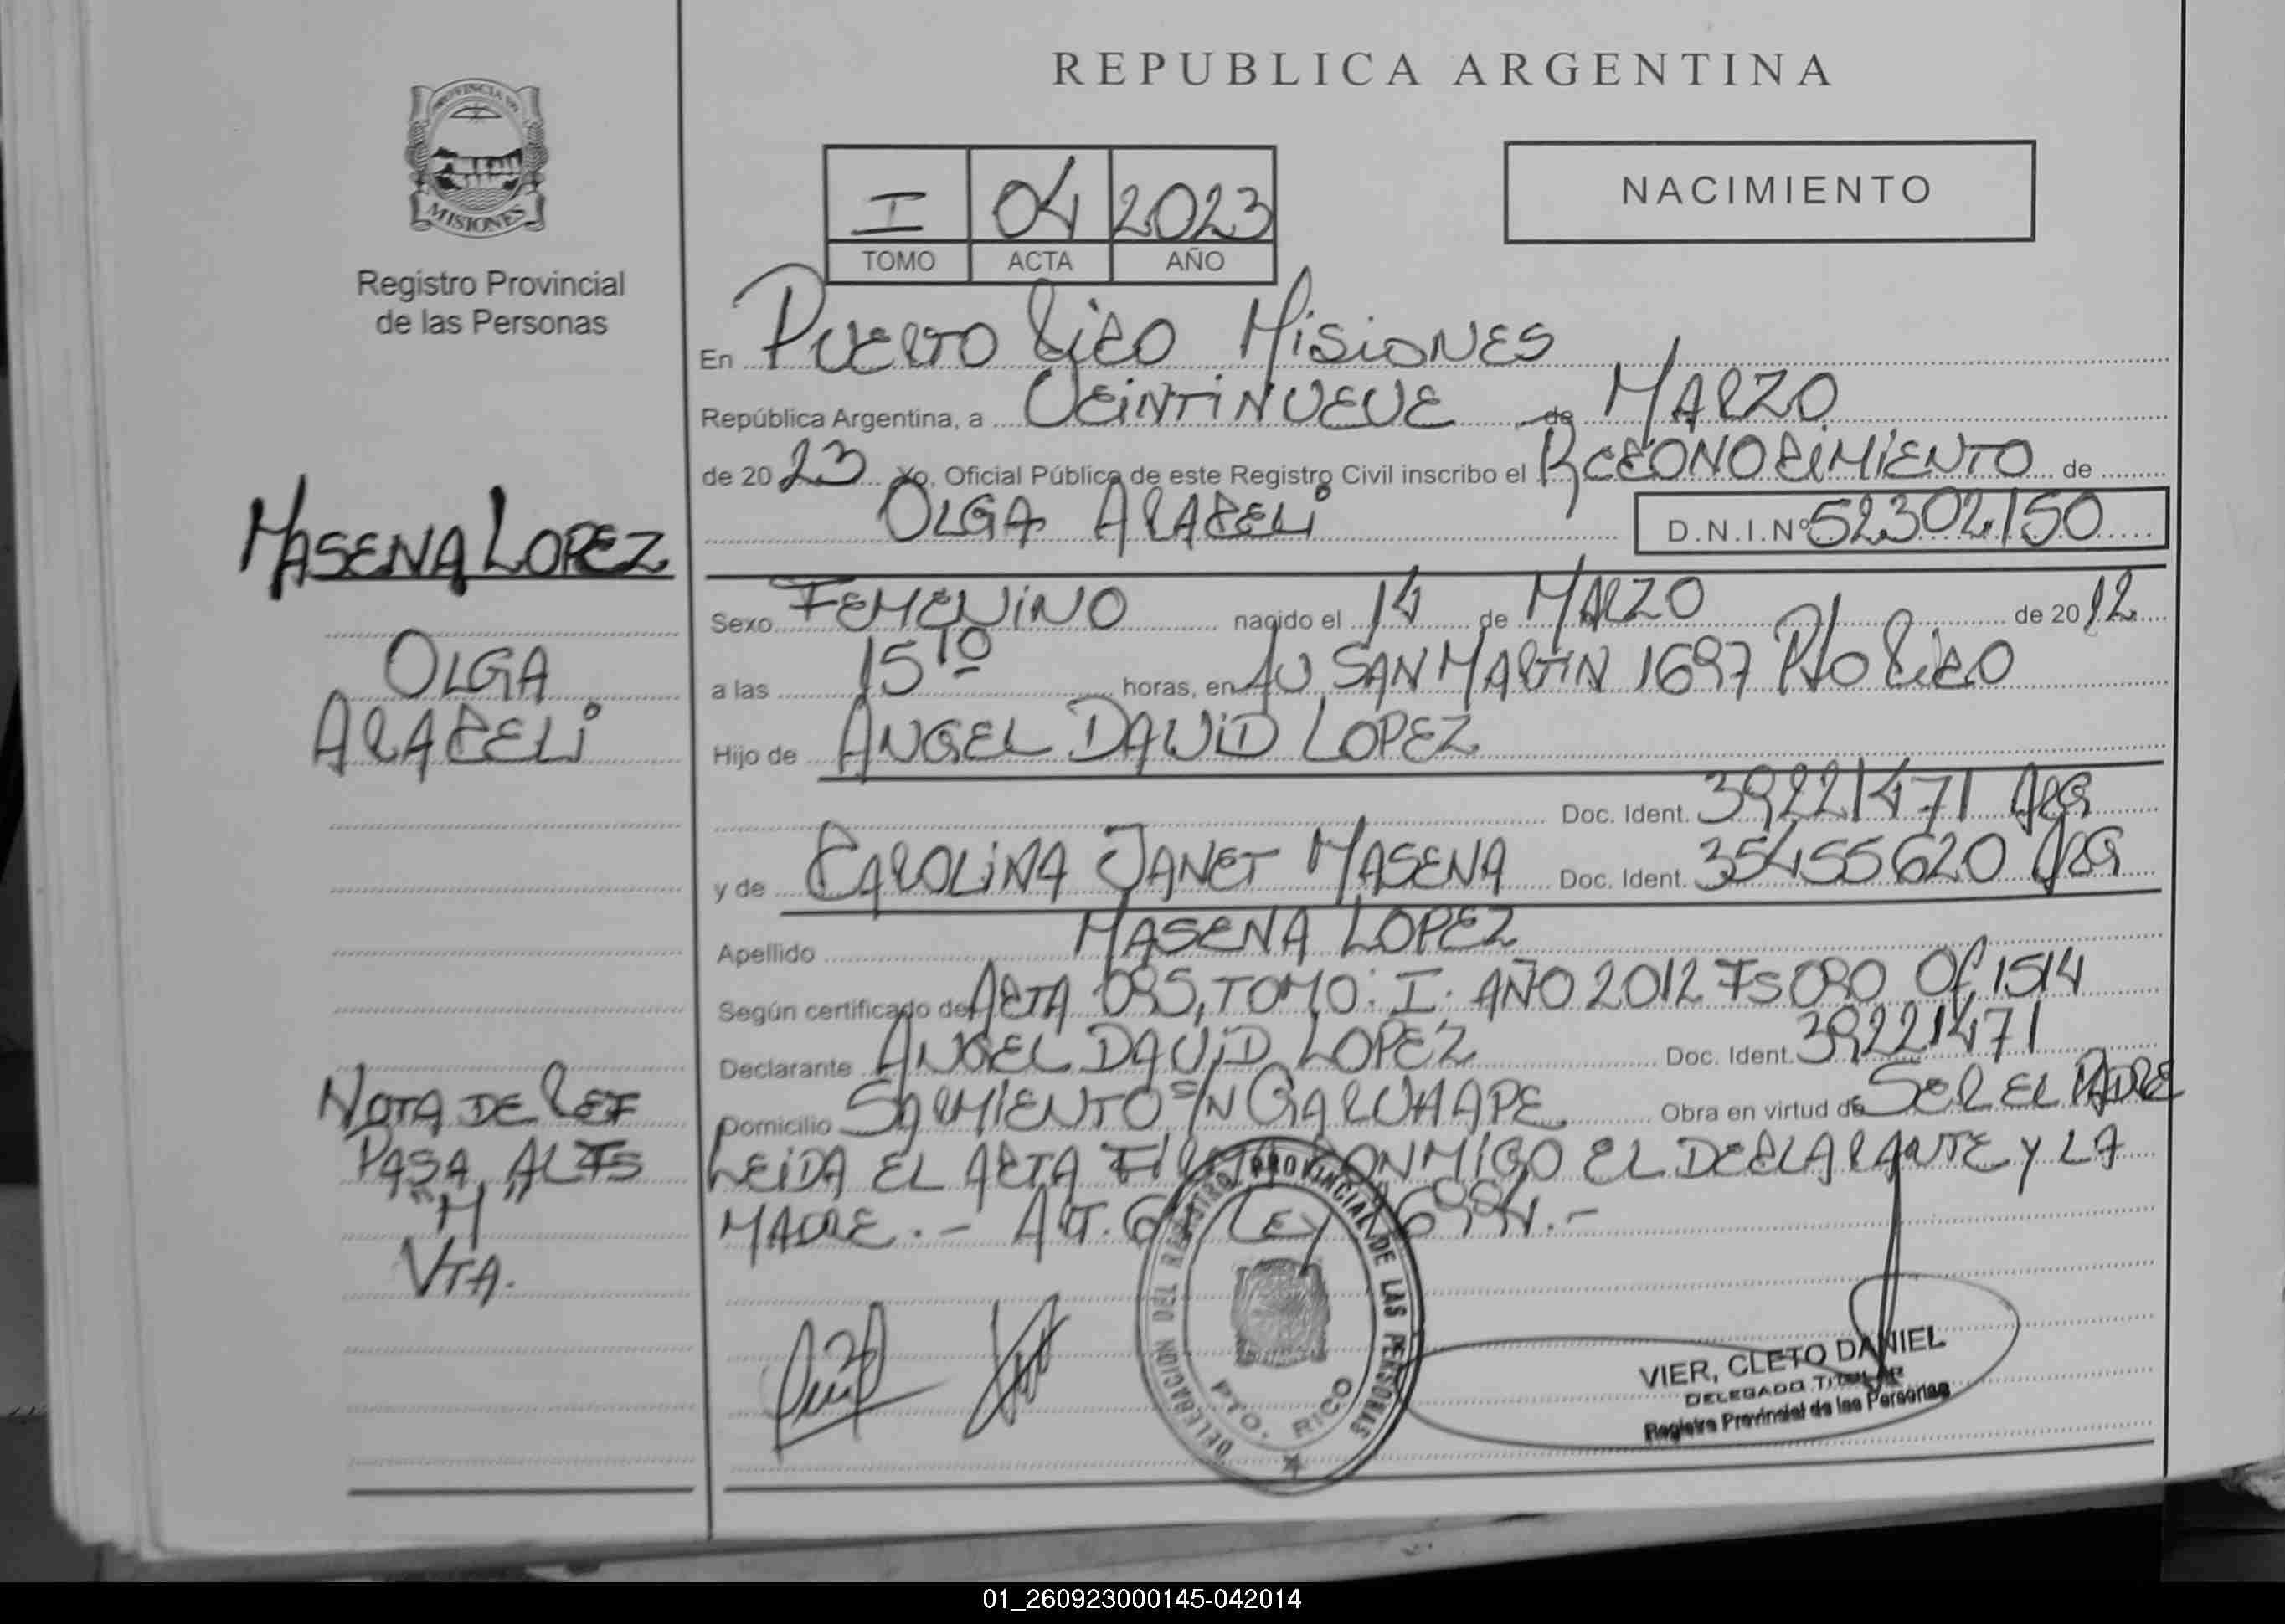 REPUBLICA ARGENTINA
PROVINCIA DE
MISIONES
Registro Provincial
de las Personas
NACIMIENTO
I 04 2023
TOMO ACTA AÑO
En PUERTO RICO MISIONES
República Argentina, a VEINTINUEVE de MARZO
de 20 23 Yo, Oficial Público de este Registro Civil inscribo el RECONOCIMIENTO de
OLGA ARACELI D.N.I.Nº 52302150
MASENA LOPEZ
OLGA
ARACELI
Sexo FEMENINO nacido el 14 de MARZO de 20 12
a las 15 10 horas, en AV SAN MARTIN 1697 Pto RICO
Hijo de ANGEL DAVID LOPEZ
Doc. Ident. 39221471 ARG
y de CAROLINA JANET MASENA Doc. Ident. 35455620 ARG
Apellido MASENA LOPEZ
Según certificado de ACTA 095, TOMO: I. AÑO 2012 Fs 090 Of. 1514
Declarante ANGEL DAVID LOPEZ Doc. Ident. 39221471
Domicilio SARMIENTO S/N GARUHAPE Obra en virtud de SER EL PADRE
LEIDA EL ACTA FIRMA CONMIGO EL DECLARANTE Y LA
MADRE.- ART. LEY
NOTA DE REF
PASA AL Fs
"M"
VTA.
DELEGACION DEL REGISTRO PROVINCIAL DE LAS PERSONAS
PTO. RICO
VIER, CLETO DANIEL
DELEGADO TITULAR
Registro Provincial de las Personas
01_260923000145-042014